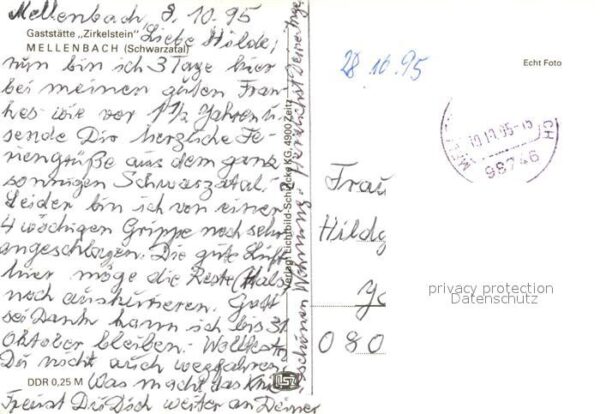 Mellenbach, 8.10.95
Gaststätte „Zirkelstein"
MELLENBACH (Schwarzatal)
Liebe Hilde,
nun bin ich 3 Tage hier
bei meinen guten Fran
kes wie vor 1½ Jahren u.
sende Dir herzliche Fe-
riengrüße aus dem ganz
sonnigen Schwarzatal.
Leider bin ich von einer
4 wöchigen Grippe noch sehr
angeschlagen. Die gute Luft
hier möge die Reste (Hals)
noch auskurieren. Gott
sei Dank kann ich bis 31.
Oktober bleiben. Wolltest
Du nicht auch wegfahren
Was macht das Knie
Freust Du Dich weiter an Deiner
schönen Wohnung? Herzlichst Deine Inge
DDR 0,25 M
Verlag Lichtbild-Schincke KG, 4900 Zeitz
28.10.95
Echt Foto
98746
Frau
Hildg
080
privacy protection
Datenschutz